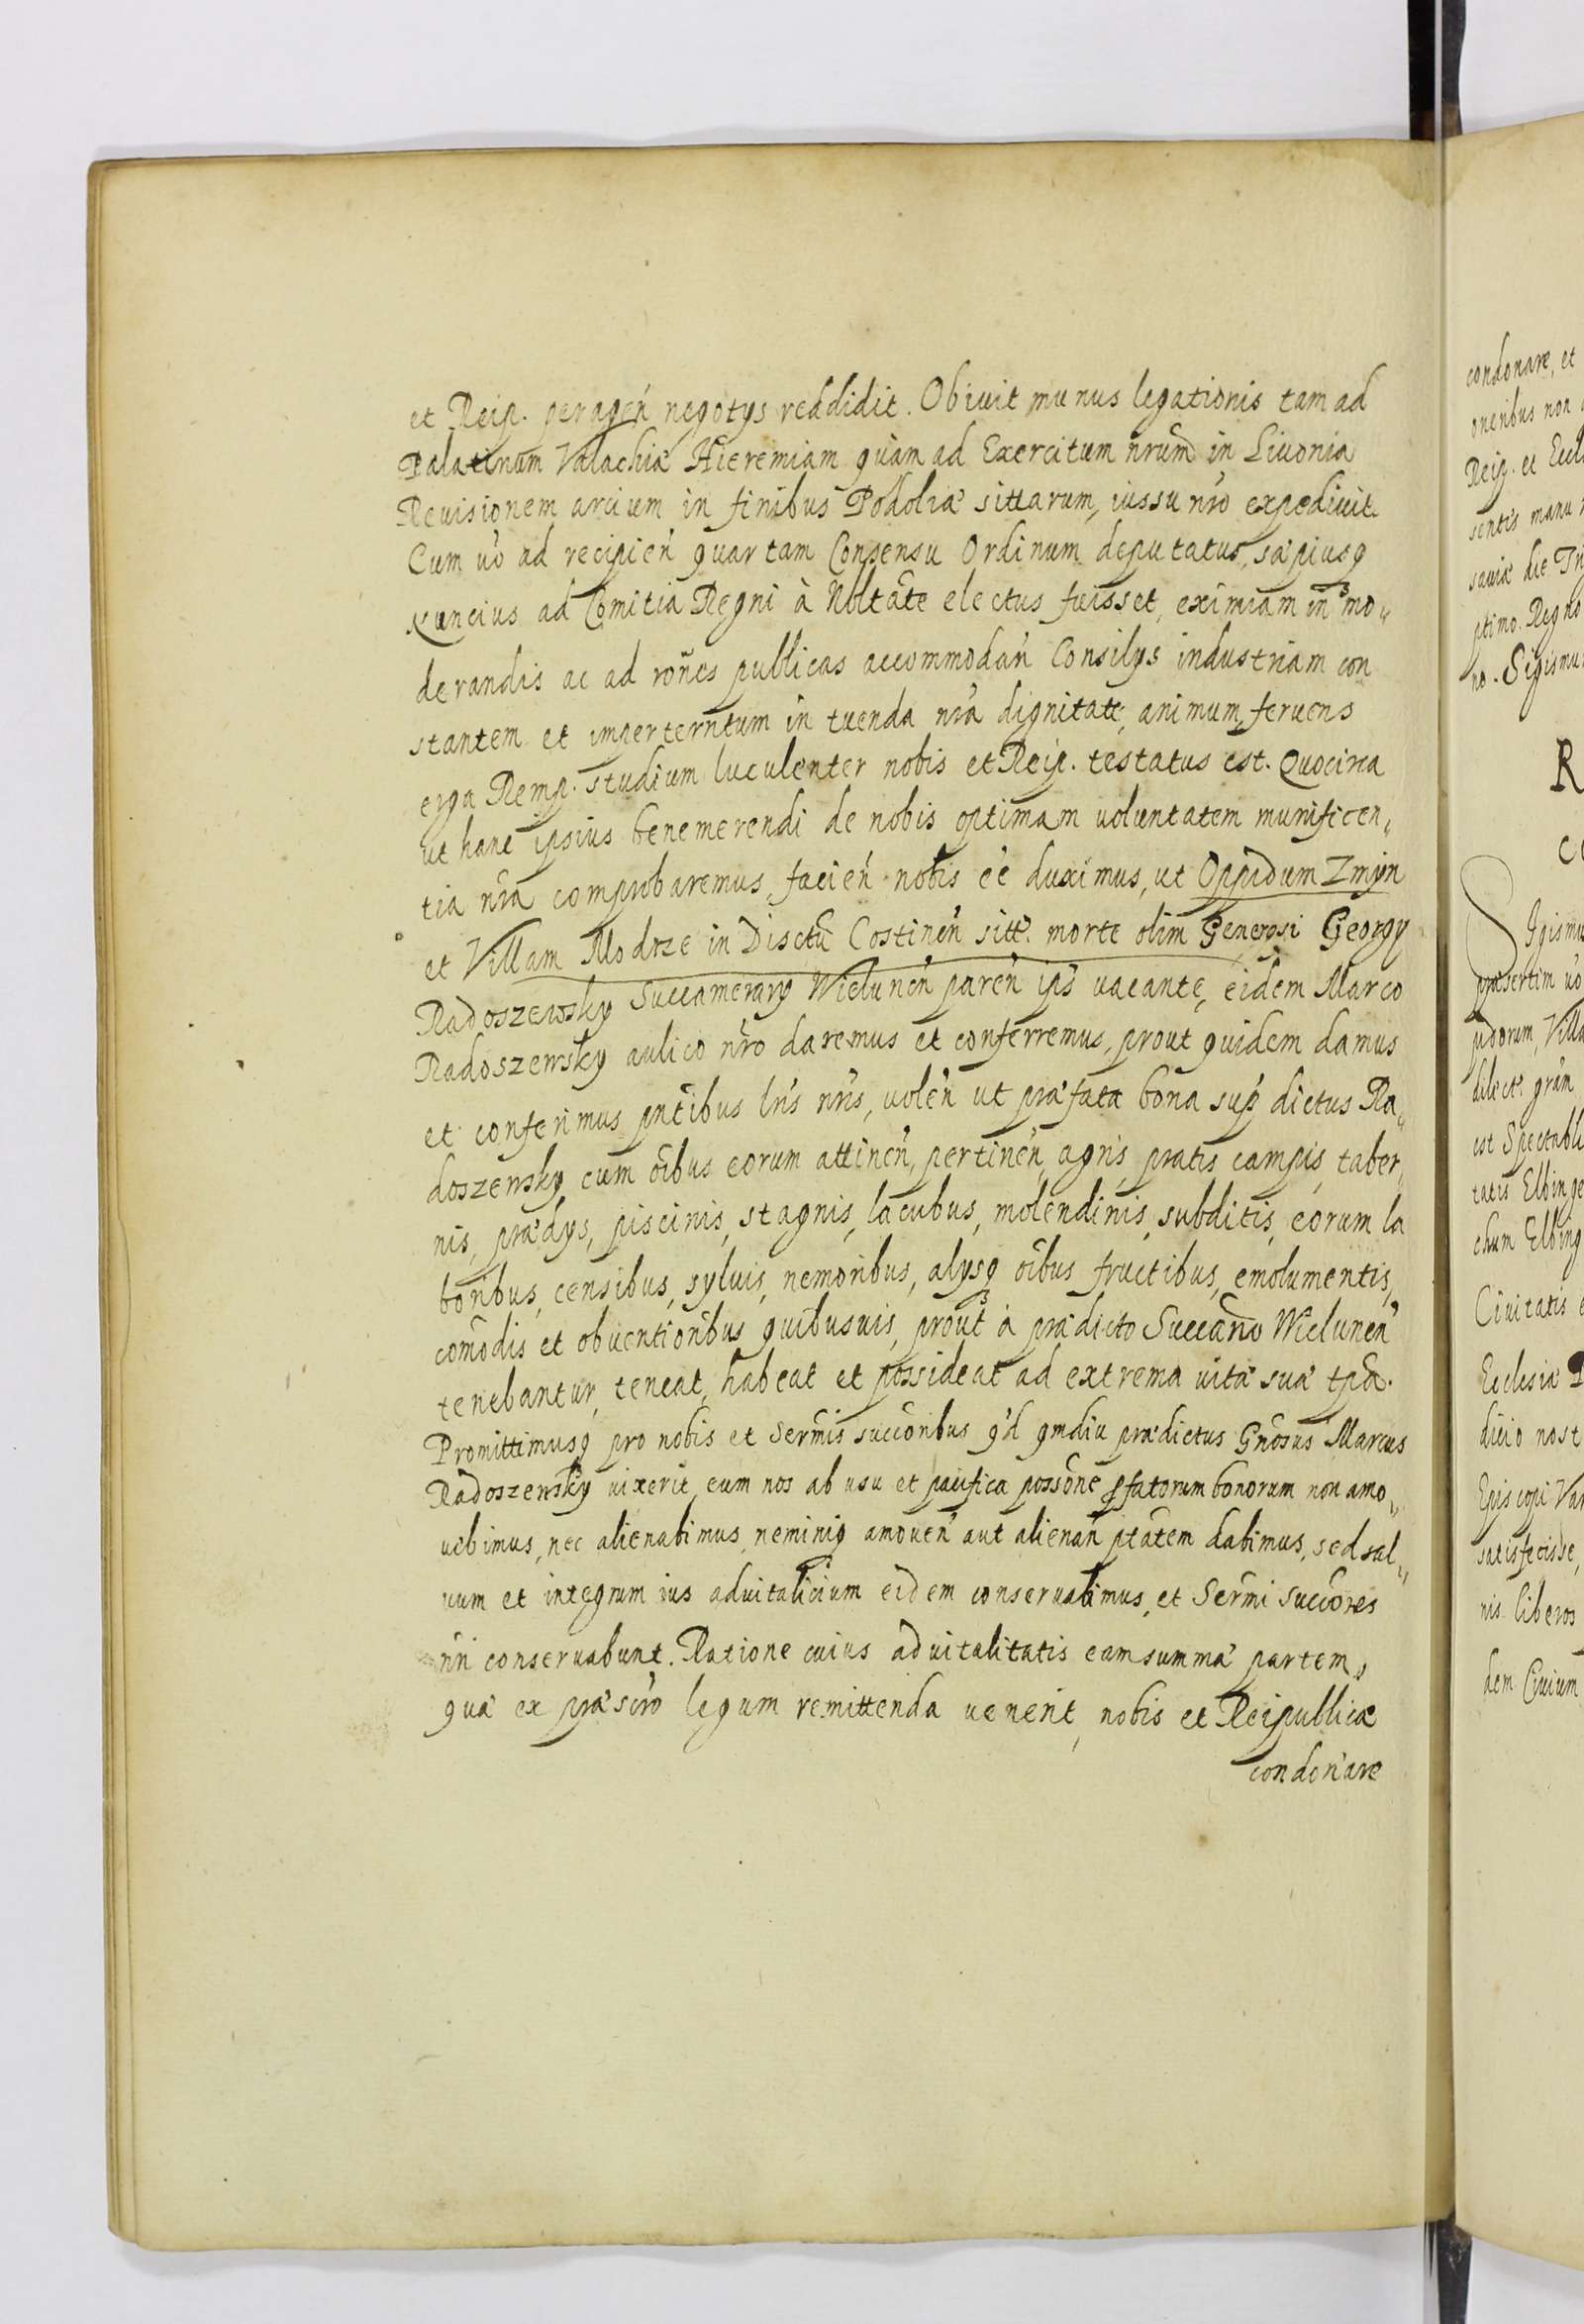 et Reip. peragen̄ negotys reddidit. Obiuit munus legationis tam ad
Palatinum Valachiæ Hieremiam quàm ad Exercitum nr̄um in Liuonia
Reuisionem arcium in finibus Podoliæ sittarum, iussu nr̄o expediuit.
Cum ūo ad recipień quartam Consensu Ordinum deputatus, sæpiusq
Nuncius ad Comitia Regni à Nobltāte electus fuisset, eximiam in mo„
derandis ac ad rōnes publicas accommodań Consilys industriam con
stantem et imperterritum in tuenda nr̄a dignitate, animum, feruens
erga Remp. studium luculenter nobis et Reip. testatus est. Quocirca
ut hanc ipsius benemerendi de nobis optimam uoluntatem munificen„
tia nr̄a comprobaremus, facień nobis ēē duximus, ut Oppidum Zmyn
et Villam Modrze in Disctū Costinén sitt. morte olim Generosi Georgy
Radoszewsky Succamerary Wielunén parén ips uacante, eidem Marco
Radoszewsky aulico nr̄o daremus et conferremus, prout quidem damus
et conferimus pn̄tibus lr̄is nr̄is, uolén ut præfata bona sup dictus Ra„
doszewsky cum ōibus eorum attinén, pertinén, agris, pratis campis, taber„
nis, prædys, piscinis, stagnis, lacubus, molendinis, subditis, eorum la
boribus, censibus, syluis, nemoribus, alysq ōibus fructibus, emolumentis,
com̄odis et obuentionibus quibusuis, prout à prædicto Succārio Wielunén
tenebantur, teneat, habeat et possideat ad extrema uitæ suæ tp̄a.
Promittimusq pro nobis et Serm̄is succōribus q̄d qmdiu prædictus Gn̄osus Marcus
Radoszewsky uixerit, eum nos ab usu et pacifica possōne p̄fatorum bonorum non amo„
uebimus, nec alienabimus, neminiq amouén aut alienán ptātem dabimus, sed sal„
uum et integrum ius aduitalicium eidem conseruabimus, et Serm̄i succōres
nr̄i conseruabunt. Ratione cuius aduitalitatis eam summæ partem,
quæ ex præscr̄o legum remittenda uenerit, nobis et Reipublicæ
condonare
condonare, et
oneribus non
Reip. et Eccl
sentis manu
sauiæ die
ptimo. Regno
no. Sigismu
R
Sigismu
præsertim ūo
udorum, Villa
dilect. grān
est Spectabli
tatis Elbinge
chum Elbing
Ciuitatis
Ecclesiæ
dicio nost
Episcopi Var
satisfecisse,
nis liberos
dem Ciuium